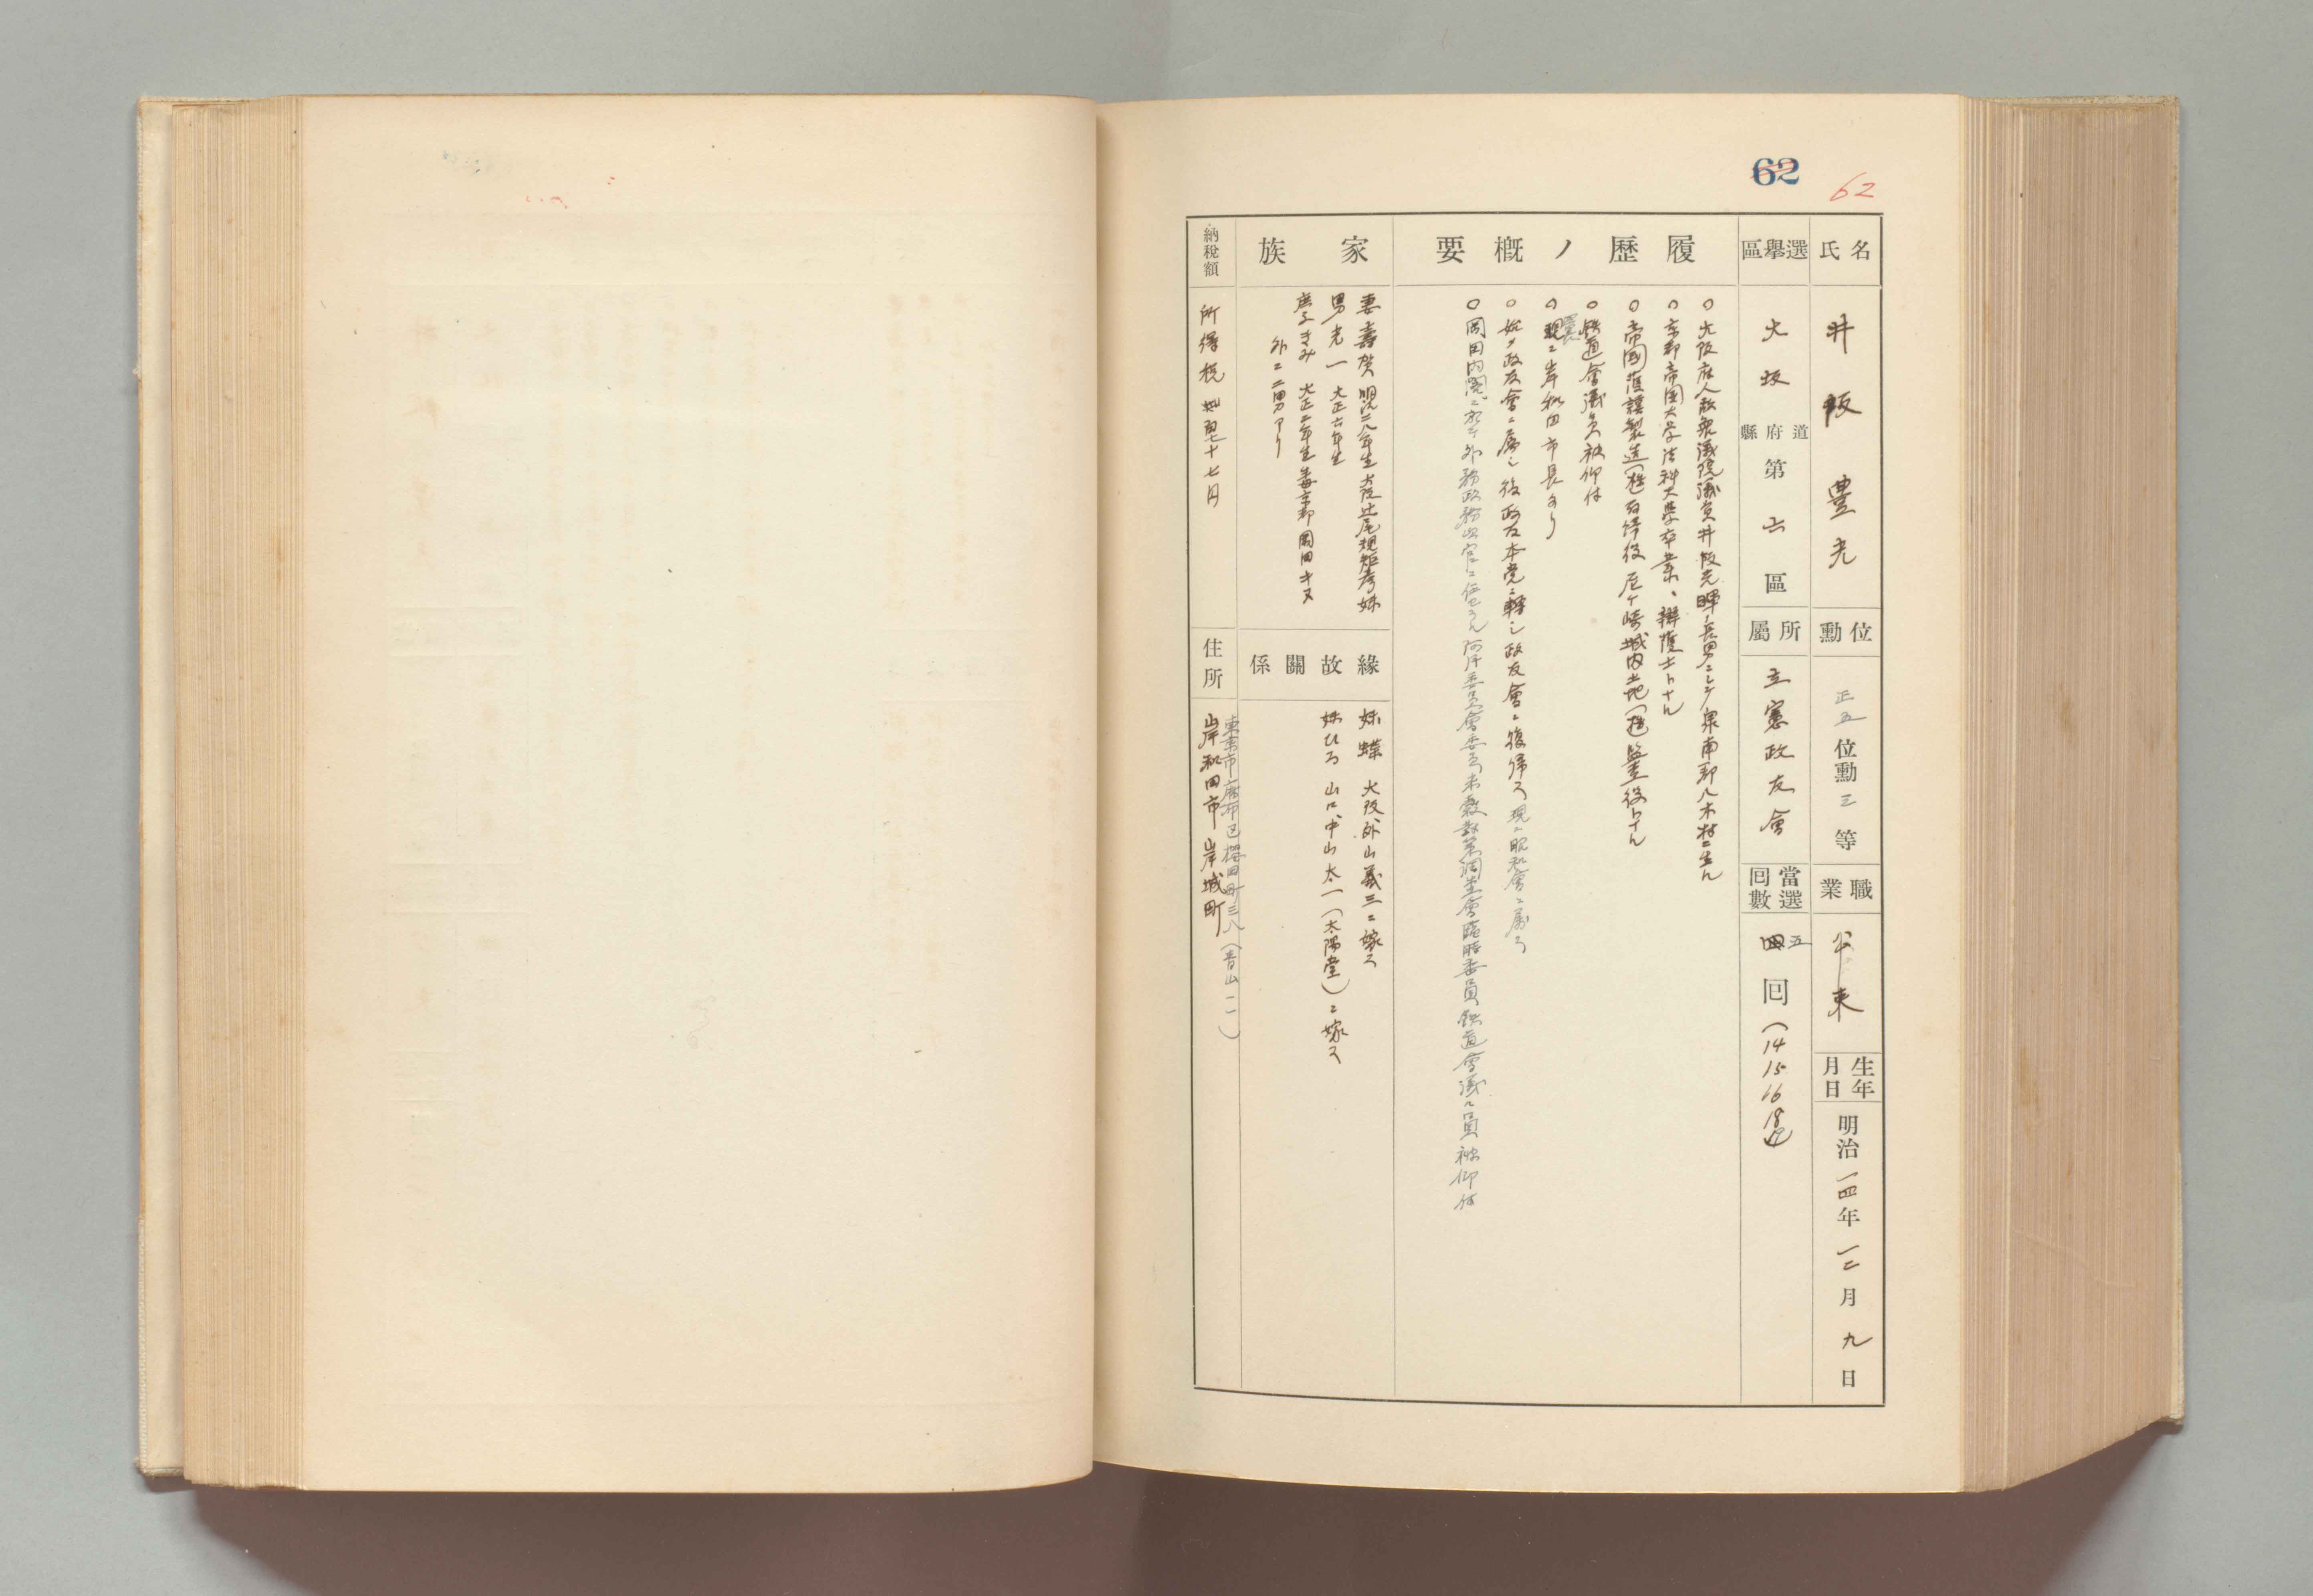 62
62
氏名
井阪豊光
位勲
正五位勲三等
職業
生年月日
明治一四年一二月九日
選擧區
大坂道府縣第六區
所屬
立憲政友會
當選回數
四五回(14 15 16 18
履歷ノ概要
○大阪府人 衆議院議員井阪光暉ノ長男ニシテ泉南郡八木村ニ生ル
○京都帝国大学法科大學卒業、辯護士トナル
○帝國護謨製造 取締役 尼ヶ崎城内土地 監査役トナル
○鉄道會議々員被仰付
○現ニ岸和田市長タリ
○始メ政友會ニ属シ後政友本党ニ轉シ政友會ニ復帰ス 現ニ昭和會ニ属ス
○岡田内閣ニ於テ外務政務次官ニ任セラル 阿片委員會委員 米穀對策調査會臨時委員 鉄道會議々員被仰付
家族
妻 壽賀 明治二八年生 大阪 辻尾規矩彦妹
男 光一 大正六年生
庶子 きみ 大正二年生 生母京都 岡田キヌ
外ニ二男アリ
緣故關係
妹 蝶 大阪 外山義三ニ嫁ス
妹 ひろ 山口 中山太一(太陽堂)ニ嫁ス
納稅額
所得税 七十七円
住所
東京市麻布区櫻田町三八(青山一一)
岸和田市岸城町